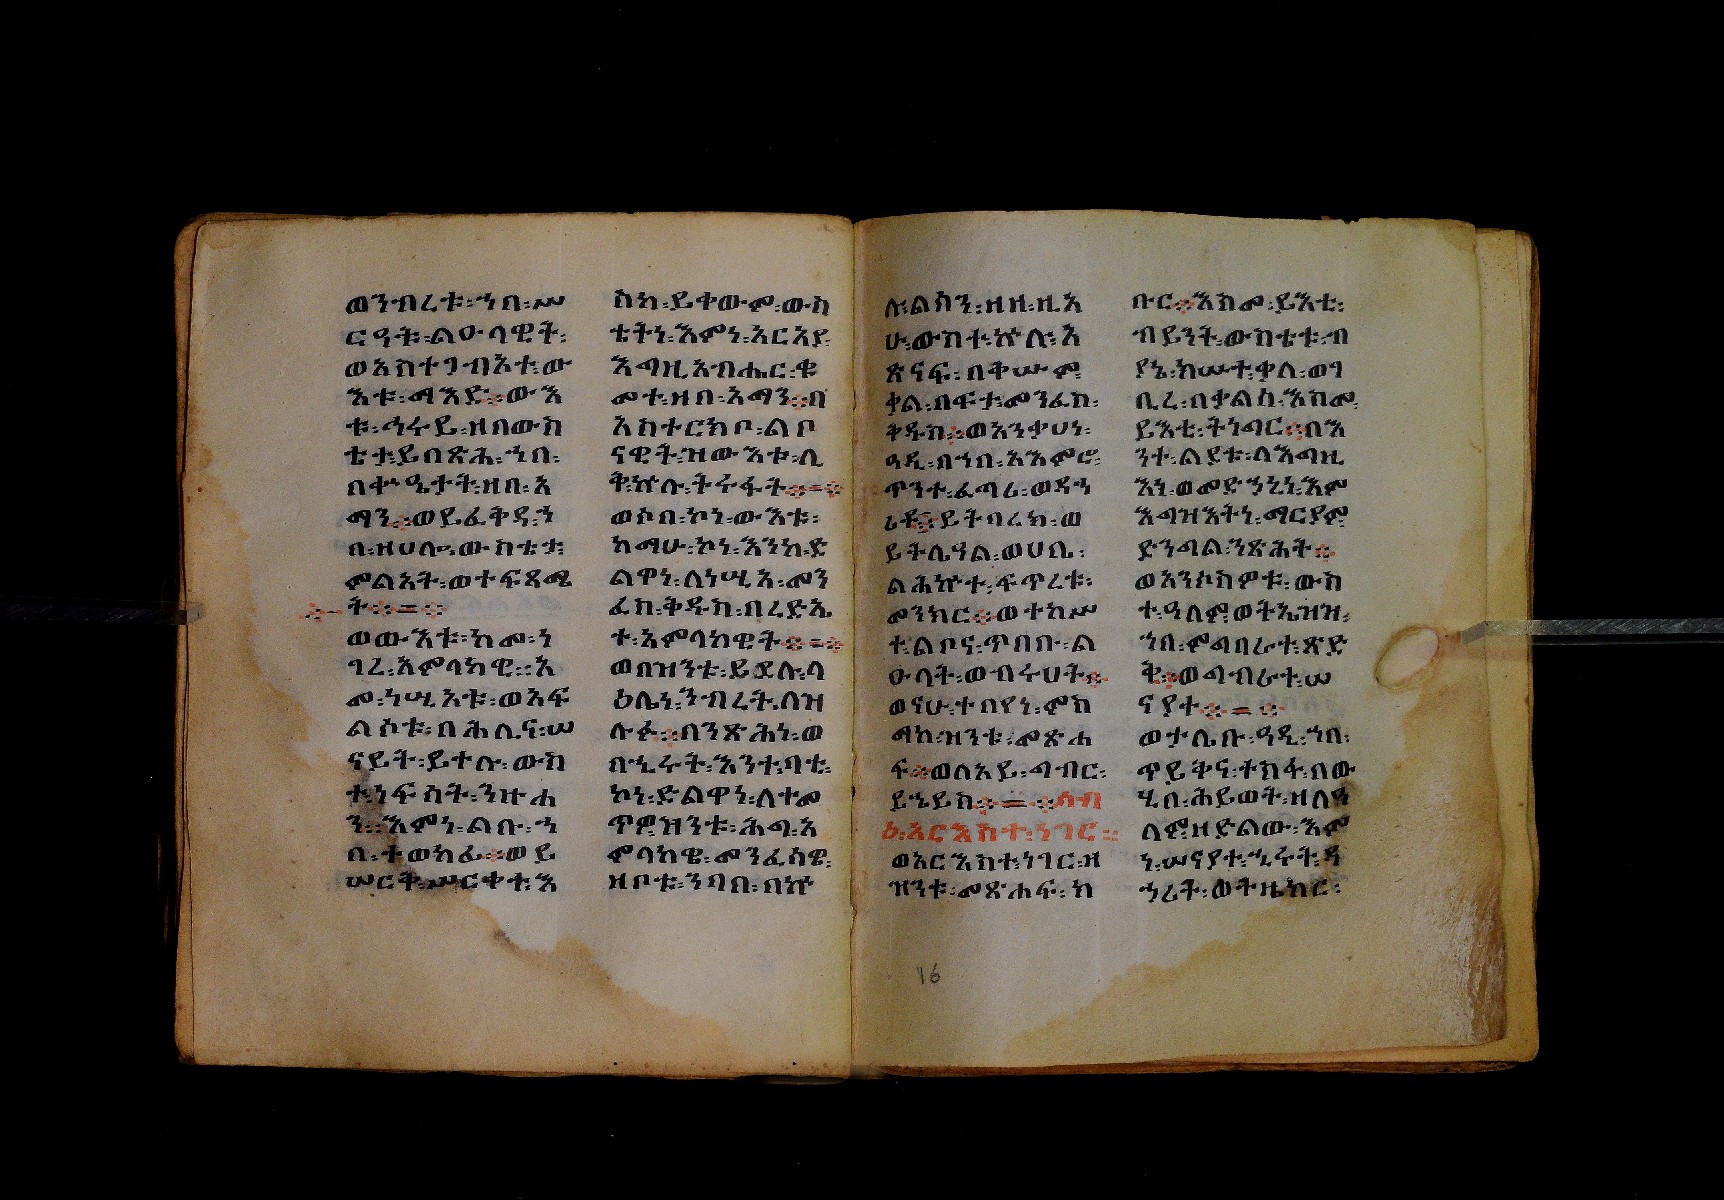 ወንብረቱ፡ኀበ፡ሥ
ርዓት፡ልዑላዊት፡
ወአስተጋብአተ፡ው
እቱ፡ማእድ።ውእ
ቱ፡ኅሩይ፡ዘበውስ
ቴታ፡ይበጽሕ፡ኀበ፡
በቍዔታት፡ዘበ፡አ
ማን።ወይፈቅድ፡ኀ
በ፡ዘሀሎ፡ውስቴታ፡
ምልአት፡ወተፍጻሜ
ት።=።
ወውእቱ፡ከመ፡ነ
ገረ፡አምላካዊ፡አ
መ፡ነሢአቱ፡ወአፍ
ልሶቱ፡በሕሊና፡ሠ
ናይት፡ይተሉ፡ውስ
ተ፡ነፍስት፡ንዙሐ
ን።እምነ፡ልቡ፡ኀ
በ፡ተወከፊ።ወይ
ሠርት፡ሥርቀተ፡እ
ስከ፡ይቀውም፡ውስ
ቴትነ፡እምነ፡አርአያ፡
እግዚአብሔር፡ቁ
መተ፡ዘበ፡አማን።በ
አስተርክቦ፡ልቦ
ናዊት፡ዝውእቱ፡ሊ
ቅ፡ኵሉ፡ትሩፋት።=።
ወሶበ፡ኮነ፡ውእቱ፡
ከማሁ፡ኮነ፡እንከ፡ድ
ልዋነ፡ለነሢአ፡መን
ፈስ፡ቅዱስ፡በረድኤ
ት፡አምላካዊት።=።
ወበዝንቱ፡ይደሉ፡ባ
ዕሌነ፡ንብረት፡ለዝ
ሉፉ።በንጽሕነ፡ወ
በኂሩት፡እንተ፡ባቲ፡
ኮነ፡ድልዋነ፡ለተመ
ጥዎ፡ዝንቱ፡ሕግ፡አ
ምላካዊ፡መንፈሳዊ፡
ዘቦቱ፡ንባበ፡በኵ
ሉ፡ልሳን፡ዘዘ፡ዚአ
ሁ፡ውስተ፡ኵሉ፡አ
ጽናፍ፡በቅሡም፡
ቃል፡በፍታ፡መንፈስ፡
ቅዱስ።ወአንቃሀነ፡
ዓዲ፡በኀበ፡አእምሮ፡
ጥንተ፡ፈጣሪ፡ወዳኀ
ሪቶ።ይትባረክ፡ወ
ይትሌዓል፡ወሀቢ፡
ልሕኵተ፡ፍጥረቱ፡
መንክር።ወተከሥ
ተ፡ልቦና፡ጥበቡ፡ል
ዑላት፡ወብሩህት።
ወናሁ፡ተበየነ፡ምስ
ማከ፡ዝንቱ፡መጽሐ
ፍ።ወለአይ፡ግብር፡
ይኄይስ።=።ክብ
ዕ፡አርእስተ፡ነገር።
ወአርእስተ፡ነገር፡ዘ
ዝንቱ፡መጽሐፍ፡ክ
ቡር።እስመ፡ይእቲ፡
ብይንት፡ውስቴቱ፡ብ
ያኔ፡ክሡተ፡ቃለ፡ወገ
ቢረ፡በቃልስ፡እስመ፡
ይእቲ፡ትነግር።በእ
ንተ፡ልደቱ፡ለእግዚ
እነ፡ወመድኀኒነ፡እም
እግዝእትነ፡ማርያም
ድንግል፡ንጽሕት።
ወአንሶስዎቱ፡ውስ
ተ፡ዓለም፡ወትኤዝዝ፡
ኀበ፡ምግባራተ፡ጽድ
ቅ።ወግብራተ፡ሠ
ናያተ።=።
ወታሌቡ፡ዓዲ፡ኀበ፡
ጥይቅና፡ተስፋ፡በው
ሂበ፡ሕይወት፡ዘለዓ
ለም፡ዘድልው፡እም
ነ፡ሠናያተ፡ኂሩት፡ዳ
ኀሪት፡ወትዜክር፡
16